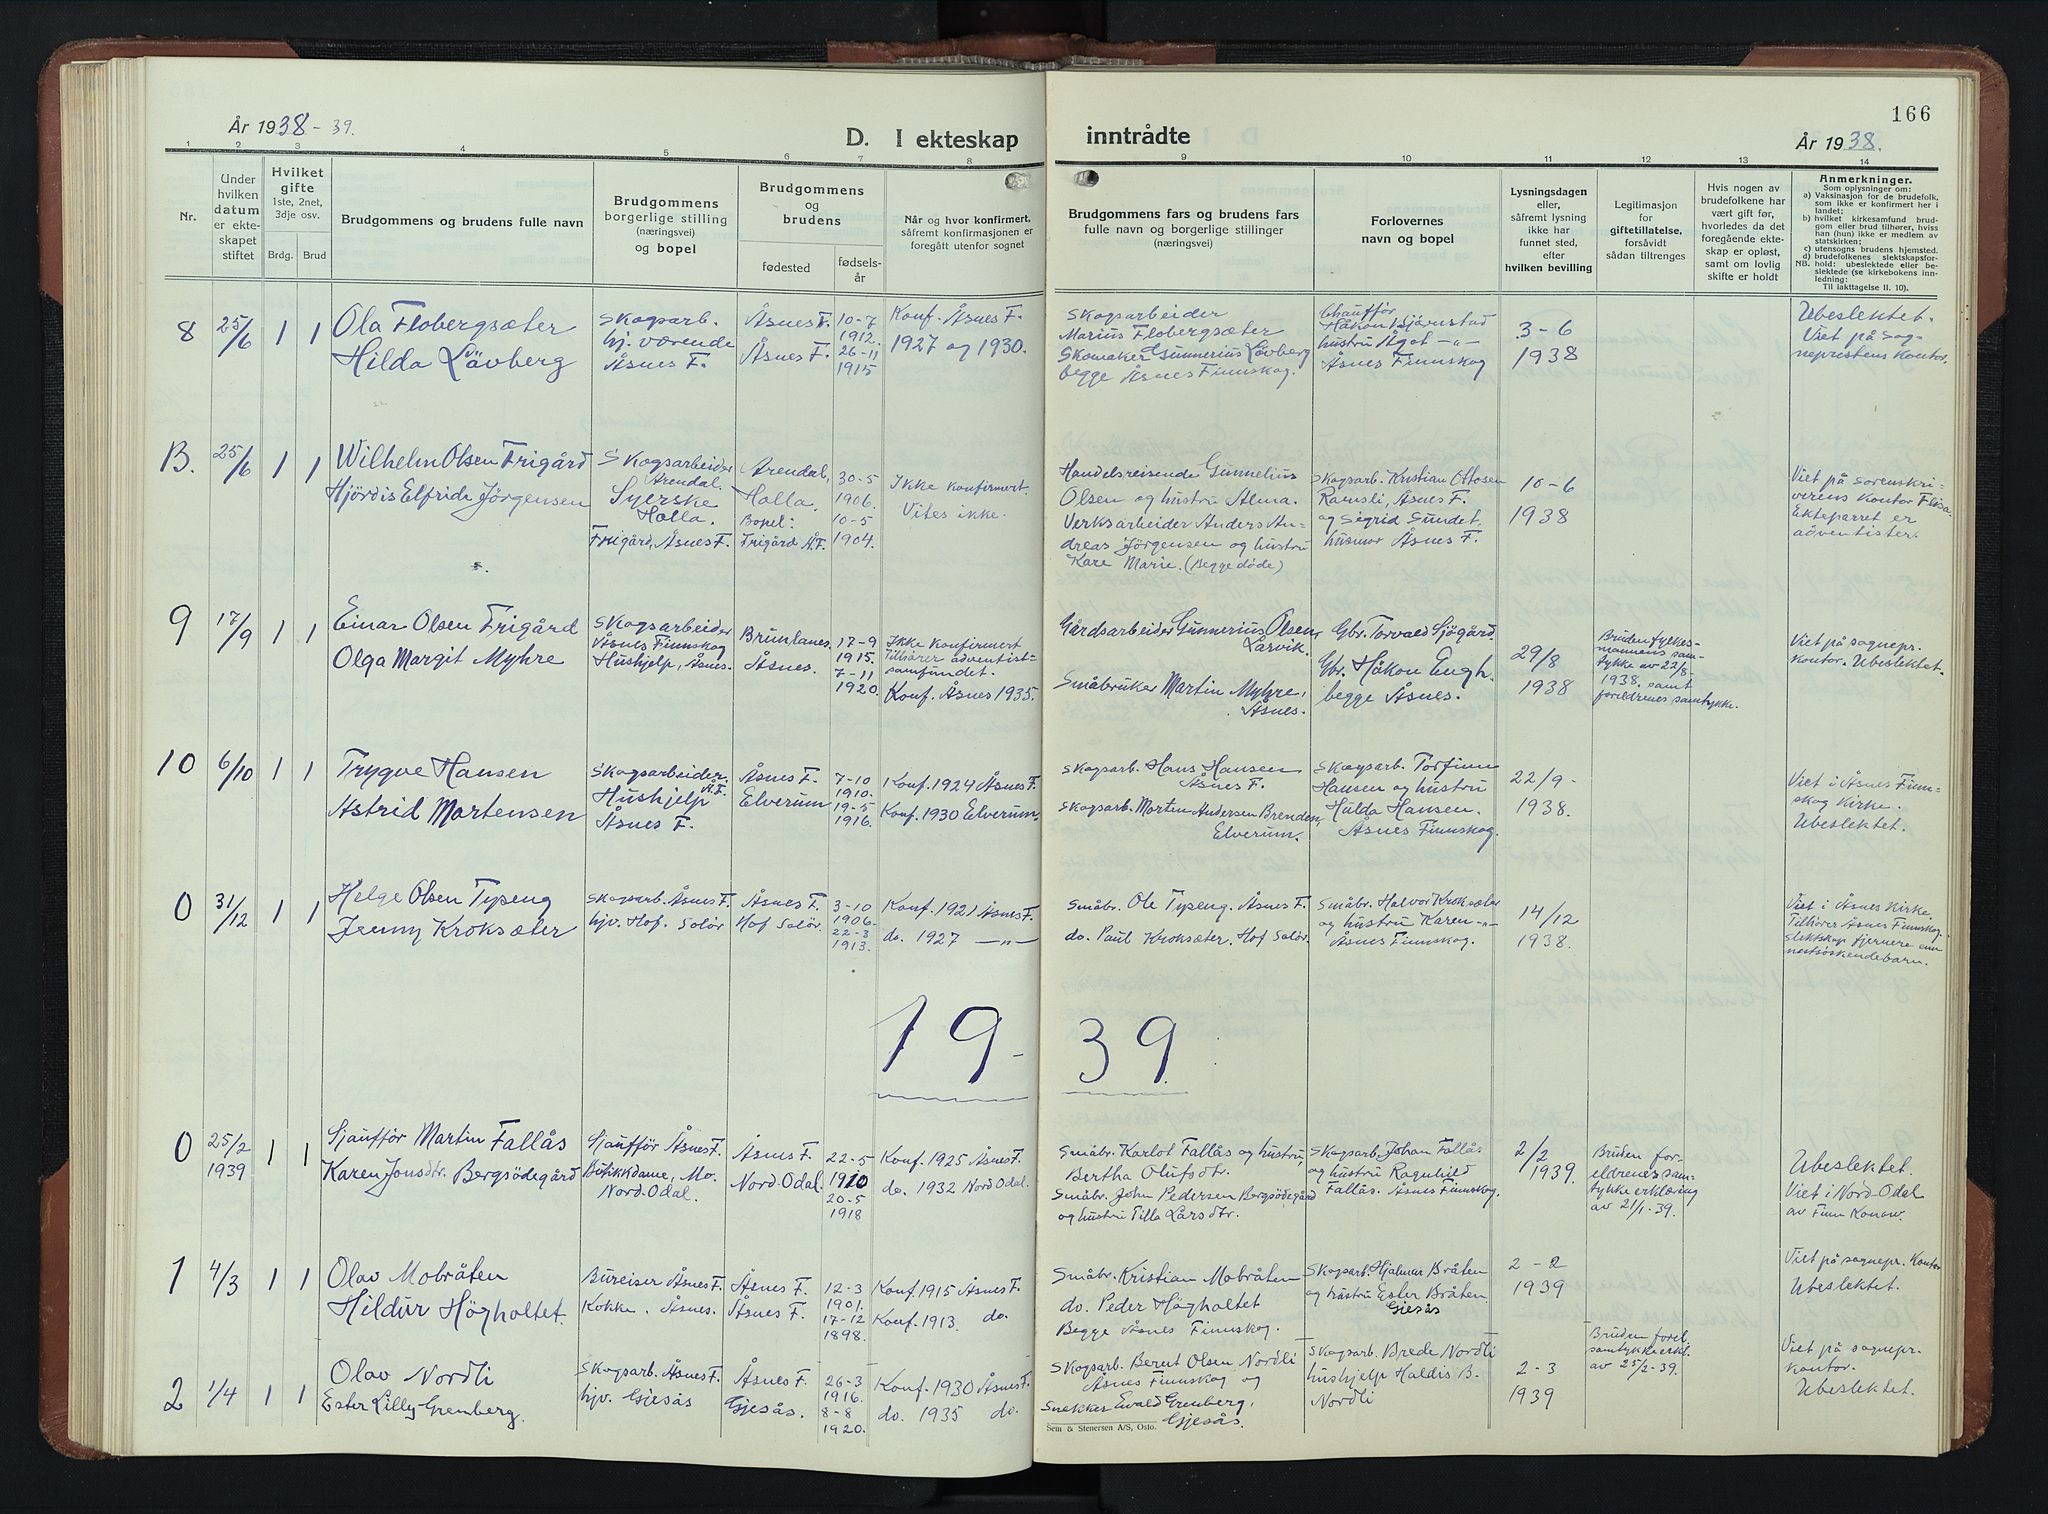 År 1938 - 39.
D. I ekteskap
inntrådte
166
År 1938.
1 2 3 4 5 6 7 8 9 10 11 12 13 14
Nr.
Under hvilken datum er ekteskapet stiftet
Hvilket gifte 1ste, 2net, 3dje osv.
Brdg. Brud
Brudgommens og brudens fulle navn
Brudgommens borgerlige stilling (næringsvei) og bopel
Brudgommens og brudens
fødested
fødselsår
Når og hvor konfirmert, såfremt konfirmasjonen er foregått utenfor sognet
Brudgommens fars og brudens fars fulle navn og borgerlige stillinger (næringsvei)
Forlovernes navn og bopel
Lysningsdagen eller, såfremt lysning ikke har funnet sted, efter hvilken bevilling
Legitimasjon for giftetillatelse, forsåvidt sådan tiltrenges
Hvis nogen av brudefolkene har vært gift før, hvorledes da det foregående ekteskap er opløst, samt om lovlig skifte er holdt
Anmerkninger.
Som oplysninger om:
a) Vaksinasjon for de brudefolk, som ikke er konfirmert her i landet;
b) hvilket kirkesamfund brudgom eller brud tilhører, hviss han (hun) ikke er medlem av statskirken;
c) utensogns brudens hjemsted.
d) brudefolkenes slektskapsforhold: ubeslektede eller beslektede (se kirkebokens innledning:
NB. Til iakttagelse II. 10).
8 25/6 1 1
Ola Flobergsæter
Hilda Lövberg
Skogsarb.
hj. værende
Åsnes F.
Åsnes F.
Åsnes F.
10-7
1912.
26-11
1915
Konf. Åsnes F.
1927 og 1930.
Skogsarbeider
Marius Flobergsæter
Skomaker Gunnerius Lövberg
begge Åsnes Finnskog.
Chauffør
Håkon Bjørnstad
hustru Ågot -"-
Åsnes Finnskog
3-6
1938
Ubeslektet.
Viet på sog-
neprestens kontor.
B. 25/6 1 1
Wilhelm Olsen Frigård
Hjördis Elfride Jörgensen
Skogsarbeider
Arendal.
Syerske
Holla.
Frigård, Åsnes F.
Arendal,
Holla
Bopel:
Frigård Å.F.
30-5
1906.
10-5
1904.
Ikke konfirmert.
Vites ikke.
Handelsreisende Gunnelius
Olsen og hustru Alma.
Verksarbeider Anders An-
dreas Jörgensen og hustru
Kare Marie. (Begge døde)
Skogsarb. Kristian Ottosen
Ramsli, Åsnes F.
og Sigrid Sundet.
husmor Åsnes F.
10-6
1938
Viet på sorenskri-
verens kontor Flisa.
Ekteparret er
adventister.
9 17/9 1 1
Einar Olsen Frigård
Olga Margit Myhre
Skogsarbeider
Åsnes Finnskog
Hushjelp, Åsnes.
Brunlanes
Åsnes.
17-9
1915.
7-11
1920.
Ikke konfirmert
Tilhører adventist-
samfundet.
Konf. Åsnes 1935.
Gårdsarbeider Gunnerius Olsen,
Larvik.
Småbruker Martin Myhre,
Åsnes.
Gbr. Torvald Sjögård.
Gbr. Håkon Engh.
begge Åsnes.
29/8
1938
Bruden fylkes-
mannens sam-
tykke av 22/8-
1938. samt
foreldrenes samtykke.
Viet på sognepr.
kontor. Ubeslektet.
10 6/10 1 1
Trygve Hansen
Astrid Martensen
Skogsarbeider.
Å.F.
Hushjelp
Åsnes F.
Åsnes F.
Elverum
7-10
1910.
19-5
1916.
Konf. 1924 Åsnes F.
Konf. 1930 Elverum.
Skogsarb. Hans Hansen
Åsnes F.
Skogsarb. Morten Andersen Brenden,
Elverum.
Skogsarb. Torfinn
Hansen og hustru
Hulda Hansen.
Åsnes Finnskog.
22/9-
1938.
Viet i Åsnes Finn-
skog Kirke.
Ubeslektet.
0 31/12 1 1
Helge Olsen Typeng
Jenny Kroksæter
Skogsarb. Åsnes F.
hjv. Hof. Solør
Åsnes F.
Hof Solør.
3-10
1906.
22-3
1913.
Konf. 1921 Åsnes F.
do. 1927 -"-
Småbr. Ole Typeng. Åsnes F.
do. Paul Kroksæter. Hof Solør.
Småbr. Halvor Kroksæter
og hustru Karen -"-
Åsnes Finnskog.
14/12
1938.
Viet i Åsnes Kirke.
Tilhører Åsnes Finnskog.
slektskap fjernere enn
nestsøskendebarn.
19- 39.
0 25/2 1939 1 1
Sjauffør Martin Fallås
Karen Jonsdtr. Bergsödegård
Sjauffør Åsnes F.
Butikkdame, Mo.
Nord-Odal.
Åsnes F.
Nord Odal
22-5
1910
20-5
1918
Konf. 1925 Åsnes F.
do. 1932 Nord Odal.
Småbr. Karlot Fallås og hustru,
Bertha Olufsdtr.
Småbr. John Pedersen Bergsödegård
og hustru Tilla Larsdtr.
Skogsarb. Johan Fallås
og hustru Ragnhild
Fallås. Åsnes Finnskog.
2/2
1939.
Bruden for-
eldrenes sam-
tykke erklæring
av 21/1-39.
Ubeslektet.
Viet i Nord-Odal
av Finn Konow.
1 4/3 1 1
Olav Mobråten
Hildur Högholtet.
Bureiser Åsnes F.
Kokke. Åsnes.
Åsnes F.
Åsnes F.
12-3
1901.
17-12
1898.
Konf. 1915 Åsnes F.
Konf. 1913. do.
Småbr. Kristian Mobråten
do. Peder Högholtet
Begge Åsnes Finnskog.
Skogsarb. Hjalmar Bråten
og hustru Ester Bråten.
Gjesås
2-2
1939
Viet på sognepr. Kontor
Ubeslektet.
2 1/4 1 1
Olav Nordli
Ester Lilly Grenberg.
Skogsarb. Åsnes F.
hjv. Gjesås
Åsnes F.
Gjesås.
26-3
1916.
8-8
1920.
Konf. 1930 Åsnes F.
do. 1935 do.
Skogsarb. Bernt Olsen Nordli
Åsnes Finnskog og
Snekker Ewald Grenberg,
Gjesås.
Skogsarb. Brede Nordli
hushjelp Haldis B.
Nordli
2-3
1939
Bruden forel.
samtykkeerkl.
av 25/2-39.
Viet på sognepr.
kontor.
Ubeslektet.
Sem & Stenersen A/S, Oslo.